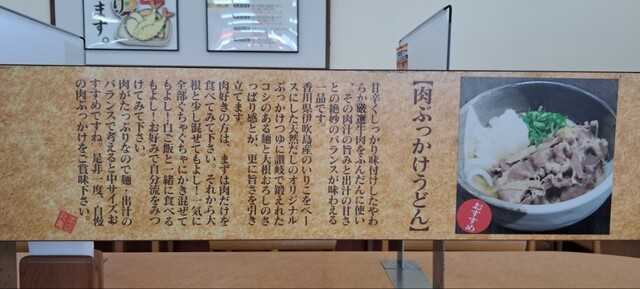 【肉ぶっかけうどん】
甘辛くしっかり味付けしたやわ
らか厳選牛肉をふんだんに使い
、その肉汁の旨みと出汁の甘さ
との絶妙のバランスが味わえる
一品です。
香川県伊吹島産のいりこをベー
スにした天然だしのオリジナル
ぶっかけつゆに讃岐で鍛えれた
コシのある麺と大根おろしのさ
っぱり感とが、更に旨さを引き
立てます。
肉好きの方は、まずは肉だけを
食べてみて下さい。それから大
根と少し混ぜてもよし！一気に
全部ぐちゃぐちゃにかき混ぜて
もよし！白ご飯と一緒に食べる
もよし！お好みで自分流をみつ
けてみて下さい。
肉がたっぷりなので麺・出汁の
バランスで考えると中サイズがお
すすめですね。是非一度、自慢
の肉ぶっかけをご賞味下さい。
おすすめ
ます。